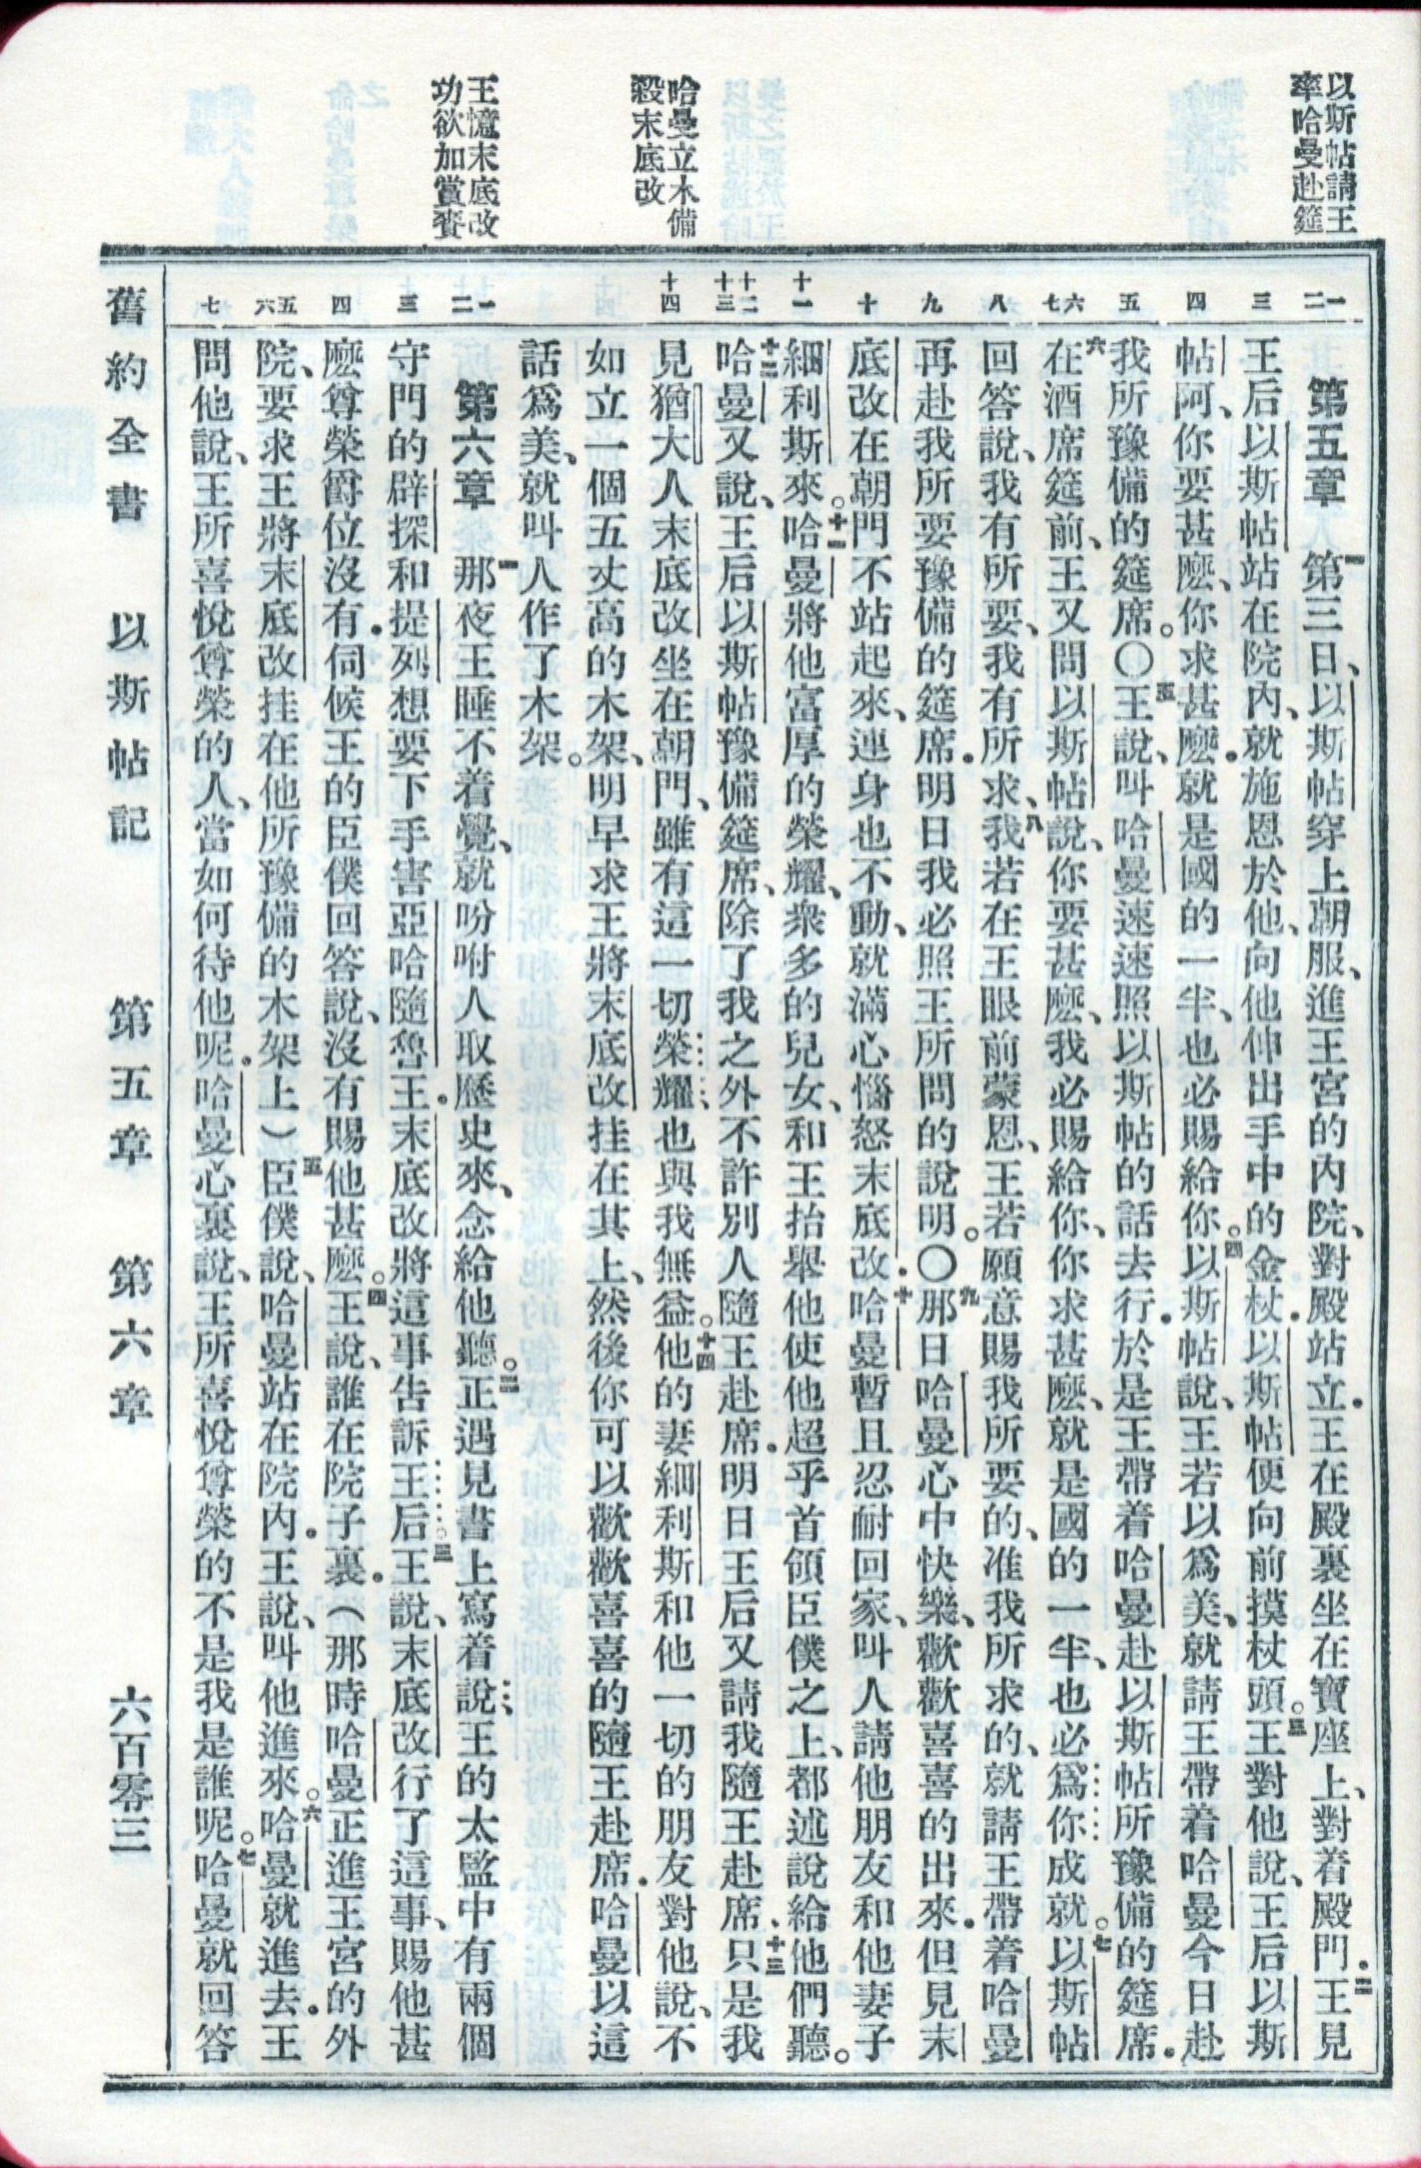 以斯帖請王
率哈曼赴筵
哈曼立木備
殺末底改
王憶末底改
功欲加賞賚
一 二 三 四 五 六 七 八 九 十 十一 十二 十三 十四 一 二 三 四 五 六 七
第五章 一第三日、以斯帖穿上朝服、進王宮的內院、對殿站立．王在殿裏坐在寶座上、對着殿門．二王見
王后以斯帖站在院內、就施恩於他、向他伸出手中的金杖．以斯帖便向前摸杖頭。三王對他說、王后以斯
帖阿、你要甚麼、你求甚麼．就是國的一半、也必賜給你。四以斯帖說、王若以爲美、就請王帶着哈曼今日赴
我所豫備的筵席。〇五王說、叫哈曼速速照以斯帖的話去行．於是王帶着哈曼赴以斯帖所豫備的筵席．
六在酒席筵前、王又問以斯帖說、你要甚麼、我必賜給你、你求甚麼、就是國的一半、也必爲你成就。七以斯帖
回答說、我有所要、我有所求、八我若在王眼前蒙恩、王若願意賜我所要的、准我所求的、就請王帶着哈曼
再赴我所要豫備的筵席．明日我必照王所問的說明。〇九那日哈曼心中快樂、歡歡喜喜的出來．但見末
底改在朝門不站起來、連身也不動、就滿心惱怒末底改．十哈曼暫且忍耐回家、叫人請他朋友和他妻子
細利斯來。十一哈曼將他富厚的榮耀、衆多的兒女、和王抬舉他使他超乎首領臣僕之上、都述說給他們聽。
十二哈曼又說、王后以斯帖豫備筵席、除了我之外不許別人隨王赴席．明日王后又請我隨王赴席．十三只是我
見猶大人末底改坐在朝門、雖有這一切榮耀、也與我無益。十四他的妻細利斯和他一切的朋友對他說、不
如立一個五丈高的木架、明早求王將末底改挂在其上、然後你可以歡歡喜喜的隨王赴席．哈曼以這
話爲美、就叫人作了木架。
第六章 一那夜王睡不着覺、就吩咐人取歷史來、念給他聽。二正遇見書上寫着說、王的太監中有兩個
守門的辟探和提列想要下手害亞哈隨魯王．末底改將這事告訴王后。三王說、末底改行了這事、賜他甚
麼尊榮爵位沒有．伺候王的臣僕回答說、沒有賜他甚麼。四王說、誰在院子裏．（那時哈曼正進王宮的外
院、要求王將末底改挂在他所豫備的木架上）五臣僕說、哈曼站在院內．王說、叫他進來。六哈曼就進去．王
問他說、王所喜悅尊榮的人、當如何待他呢．哈曼心裏說、王所喜悅尊榮的不是我是誰呢。七哈曼就回答
舊約全書 以斯帖記 第五章 第六章 六百零三